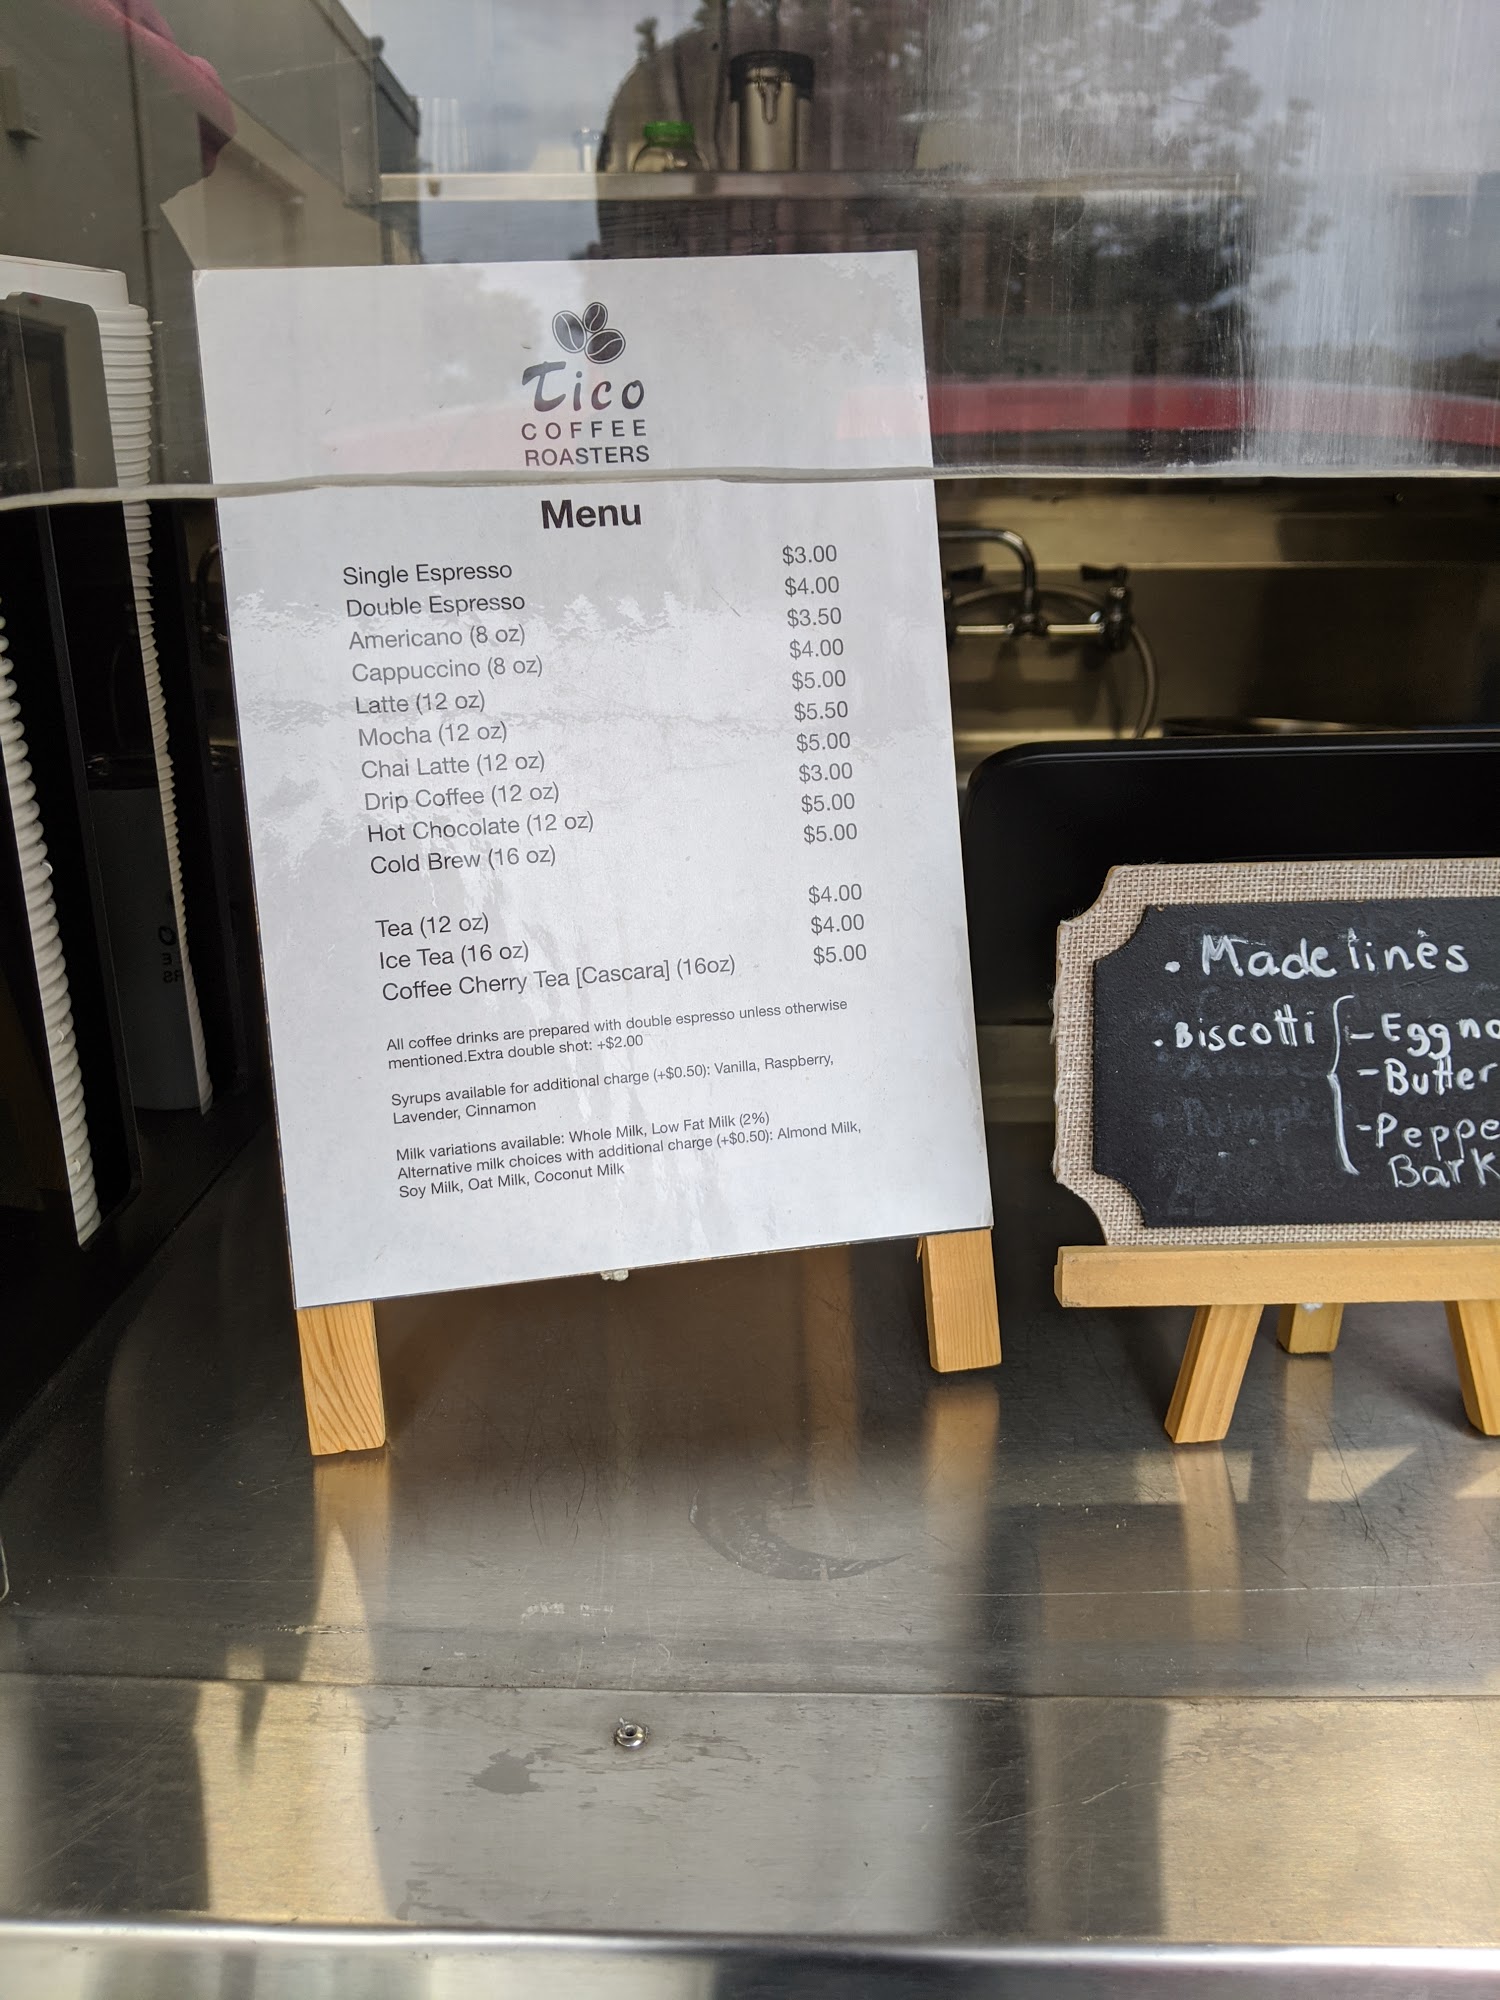 Tico
COFFEE
ROASTERS
Menu
Single Espresso $3.00
Double Espresso $4.00
Americano (8 oz) $3.50
Cappuccino (8 oz) $4.00
Latte (12 oz) $5.00
Mocha (12 oz) $5.50
Chai Latte (12 oz) $5.00
Drip Coffee (12 oz) $3.00
Hot Chocolate (12 oz) $5.00
Cold Brew (16 oz) $5.00
Tea (12 oz) $4.00
Ice Tea (16 oz) $4.00
Coffee Cherry Tea [Cascara] (16oz) $5.00
All coffee drinks are prepared with double espresso unless otherwise
mentioned.Extra double shot: +$2.00
Syrups available for additional charge (+$0.50): Vanilla, Raspberry,
Lavender, Cinnamon
Milk variations available: Whole Milk, Low Fat Milk (2%)
Alternative milk choices with additional charge (+$0.50): Almond Milk,
Soy Milk, Oat Milk, Coconut Milk
• Madelines
• Biscotti - Eggno
- Butter
- Peppe
Bark